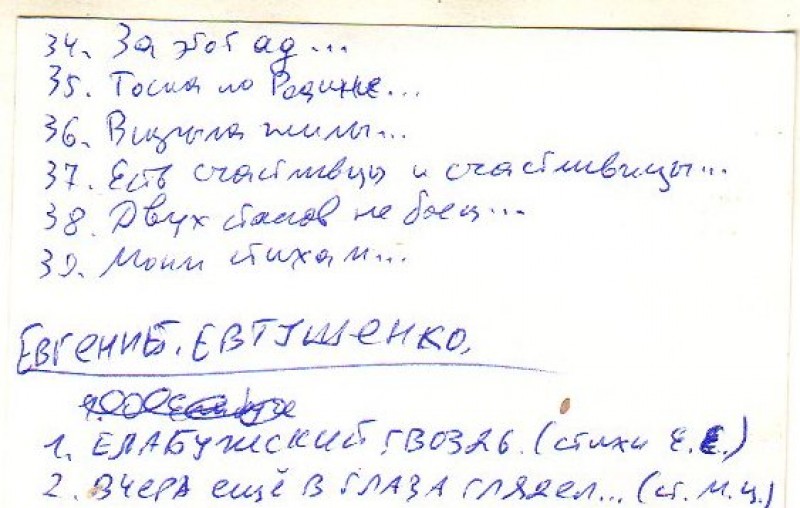 34. За этот ад...
35. Тоска по Родине...
36. Вскрыла жилы...
37. Есть счастливцы и счастливицы...
38. Двух станов не боец...
39. Моим стихам...
ЕВГЕНИЙ ЕВТУШЕНКО.
1. ЕЛАБУЖСКИЙ ГВОЗДЬ. (стихи Е.Е.)
2. ВЧЕРА ЕЩЁ В ГЛАЗА ГЛЯДЕЛ... (ст. М.Ц.)